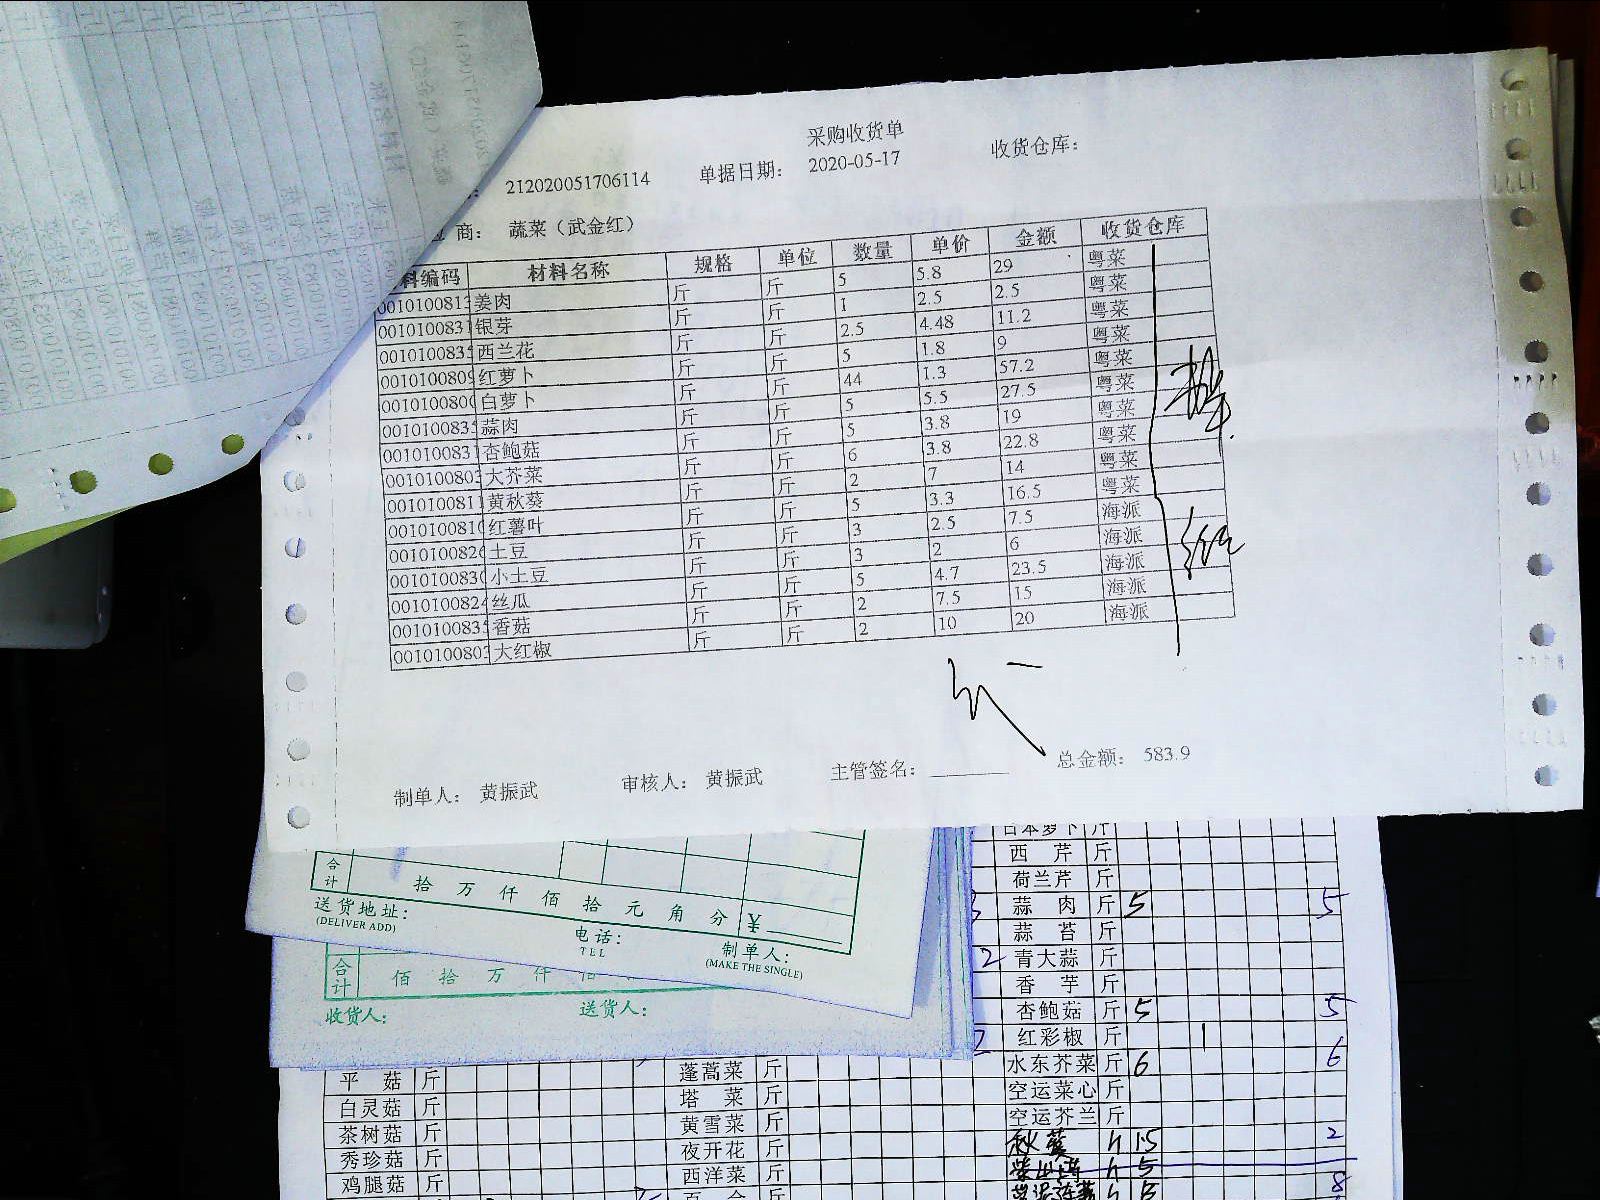 采购收货单
212020051706114 单据日期: 2020-05-17 收货仓库:
商: 蔬菜（武金红）
料编码 材料名称 规格 单位 数量 单价 金额 收货仓库
0010100813 姜肉 斤 斤 5 5.8 29 粤菜
001010083 银芽 斤 斤 1 2.5 2.5 粤菜
001010083 西兰花 斤 斤 2.5 4.48 11.2 粤菜
001010080 红萝卜 斤 斤 5 1.8 9 粤菜
001010080 白萝卜 斤 斤 44 1.3 57.2 粤菜
001010083 蒜肉 斤 斤 5 5.5 27.5 粤菜
001010083 杏鲍菇 斤 斤 5 3.8 19 粤菜
001010080 大芥菜 斤 斤 6 3.8 22.8 粤菜
001010081 黄秋葵 斤 斤 2 7 14 粤菜
001010081 红薯叶 斤 斤 5 3.3 16.5 粤菜
001010082 土豆 斤 斤 3 2.5 7.5 海派
001010083 小土豆 斤 斤 3 2 6 海派
001010082 丝瓜 斤 斤 5 4.7 23.5 海派
001010083 香菇 斤 斤 2 7.5 15 海派
001010080 大红椒 斤 斤 2 10 20 海派
制单人: 黄振武 审核人: 黄振武 主管签名: 总金额: 583.9
合计 拾 万 仟 佰 拾 元 角 分 ¥
送货地址:
(DELIVER ADD)
电话:
TEL
制单人:
(MAKE THE SINGLE)
合计 佰 拾 万 仟
收货人: 送货人:
日本萝卜 斤
西 芹 斤
荷兰芹 斤
蒜 肉 斤 5 5
蒜 苔 斤
2 青大蒜 斤
香 芋 斤
杏鲍菇 斤 5 5
红彩椒 斤
水东芥菜 斤 6 6
空运菜心 斤
空运芥兰 斤
平 菇 斤 蓬蒿菜 斤
白灵菇 斤 塔 菜 斤
茶树菇 斤 黄雪菜 斤
秀珍菇 斤 夜开花 斤
鸡腿菇 斤 西洋菜 斤
秋葵 1.5 2
5
8